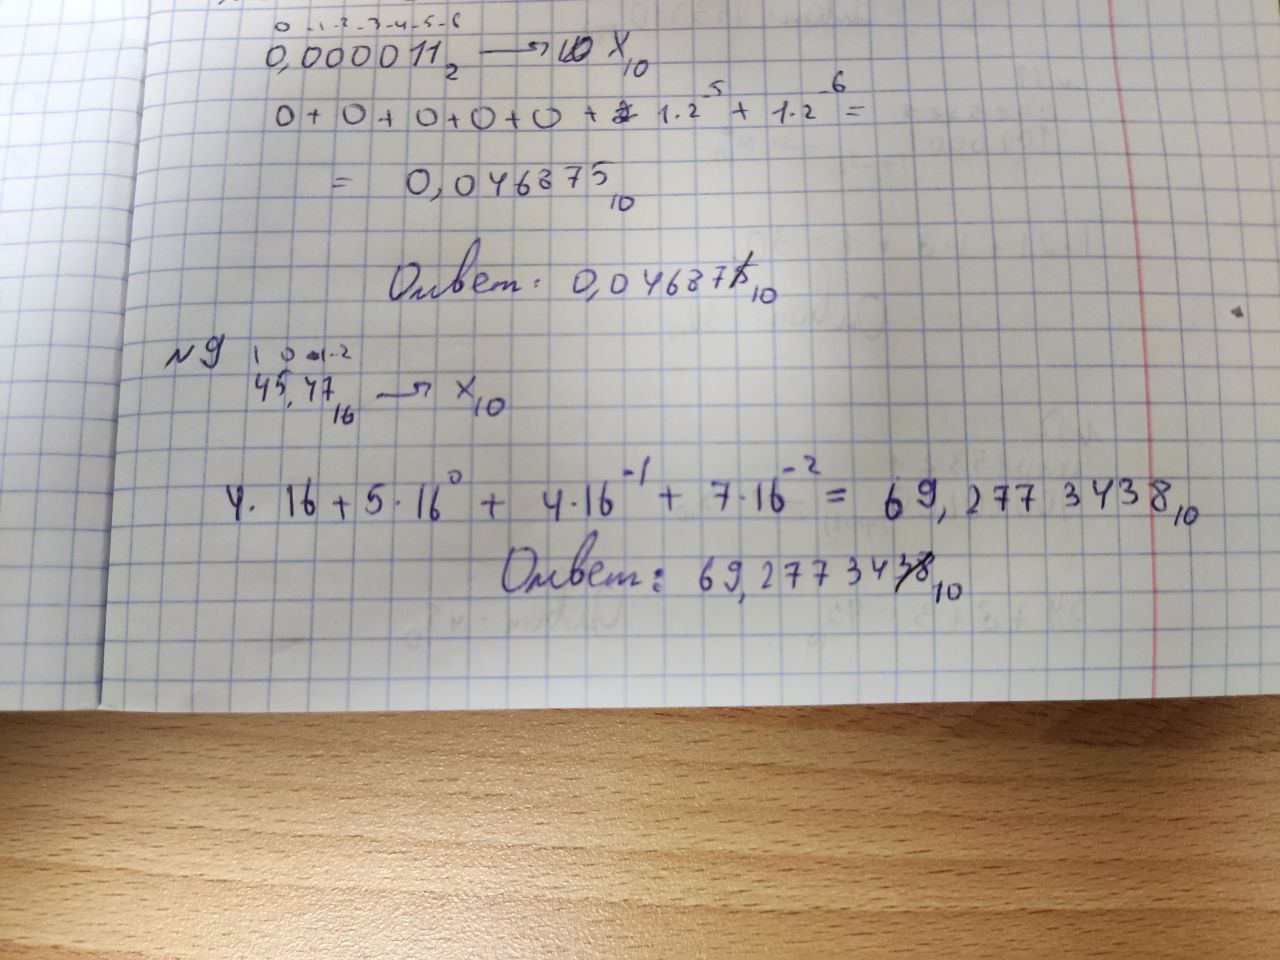 0 -1 -2 -3 -4 -5 -6
0,000011₂ → X₁₀
0 + 0 + 0 + 0 + 0 + 1·2⁻⁵ + 1·2⁻⁶ =
= 0,046875₁₀
Ответ: 0,046875₁₀
№9 1 0 -1 -2
45,47₁₆ → X₁₀
4·16 + 5·16⁰ + 4·16⁻¹ + 7·16⁻² = 69,2773438₁₀
Ответ: 69,2773438₁₀